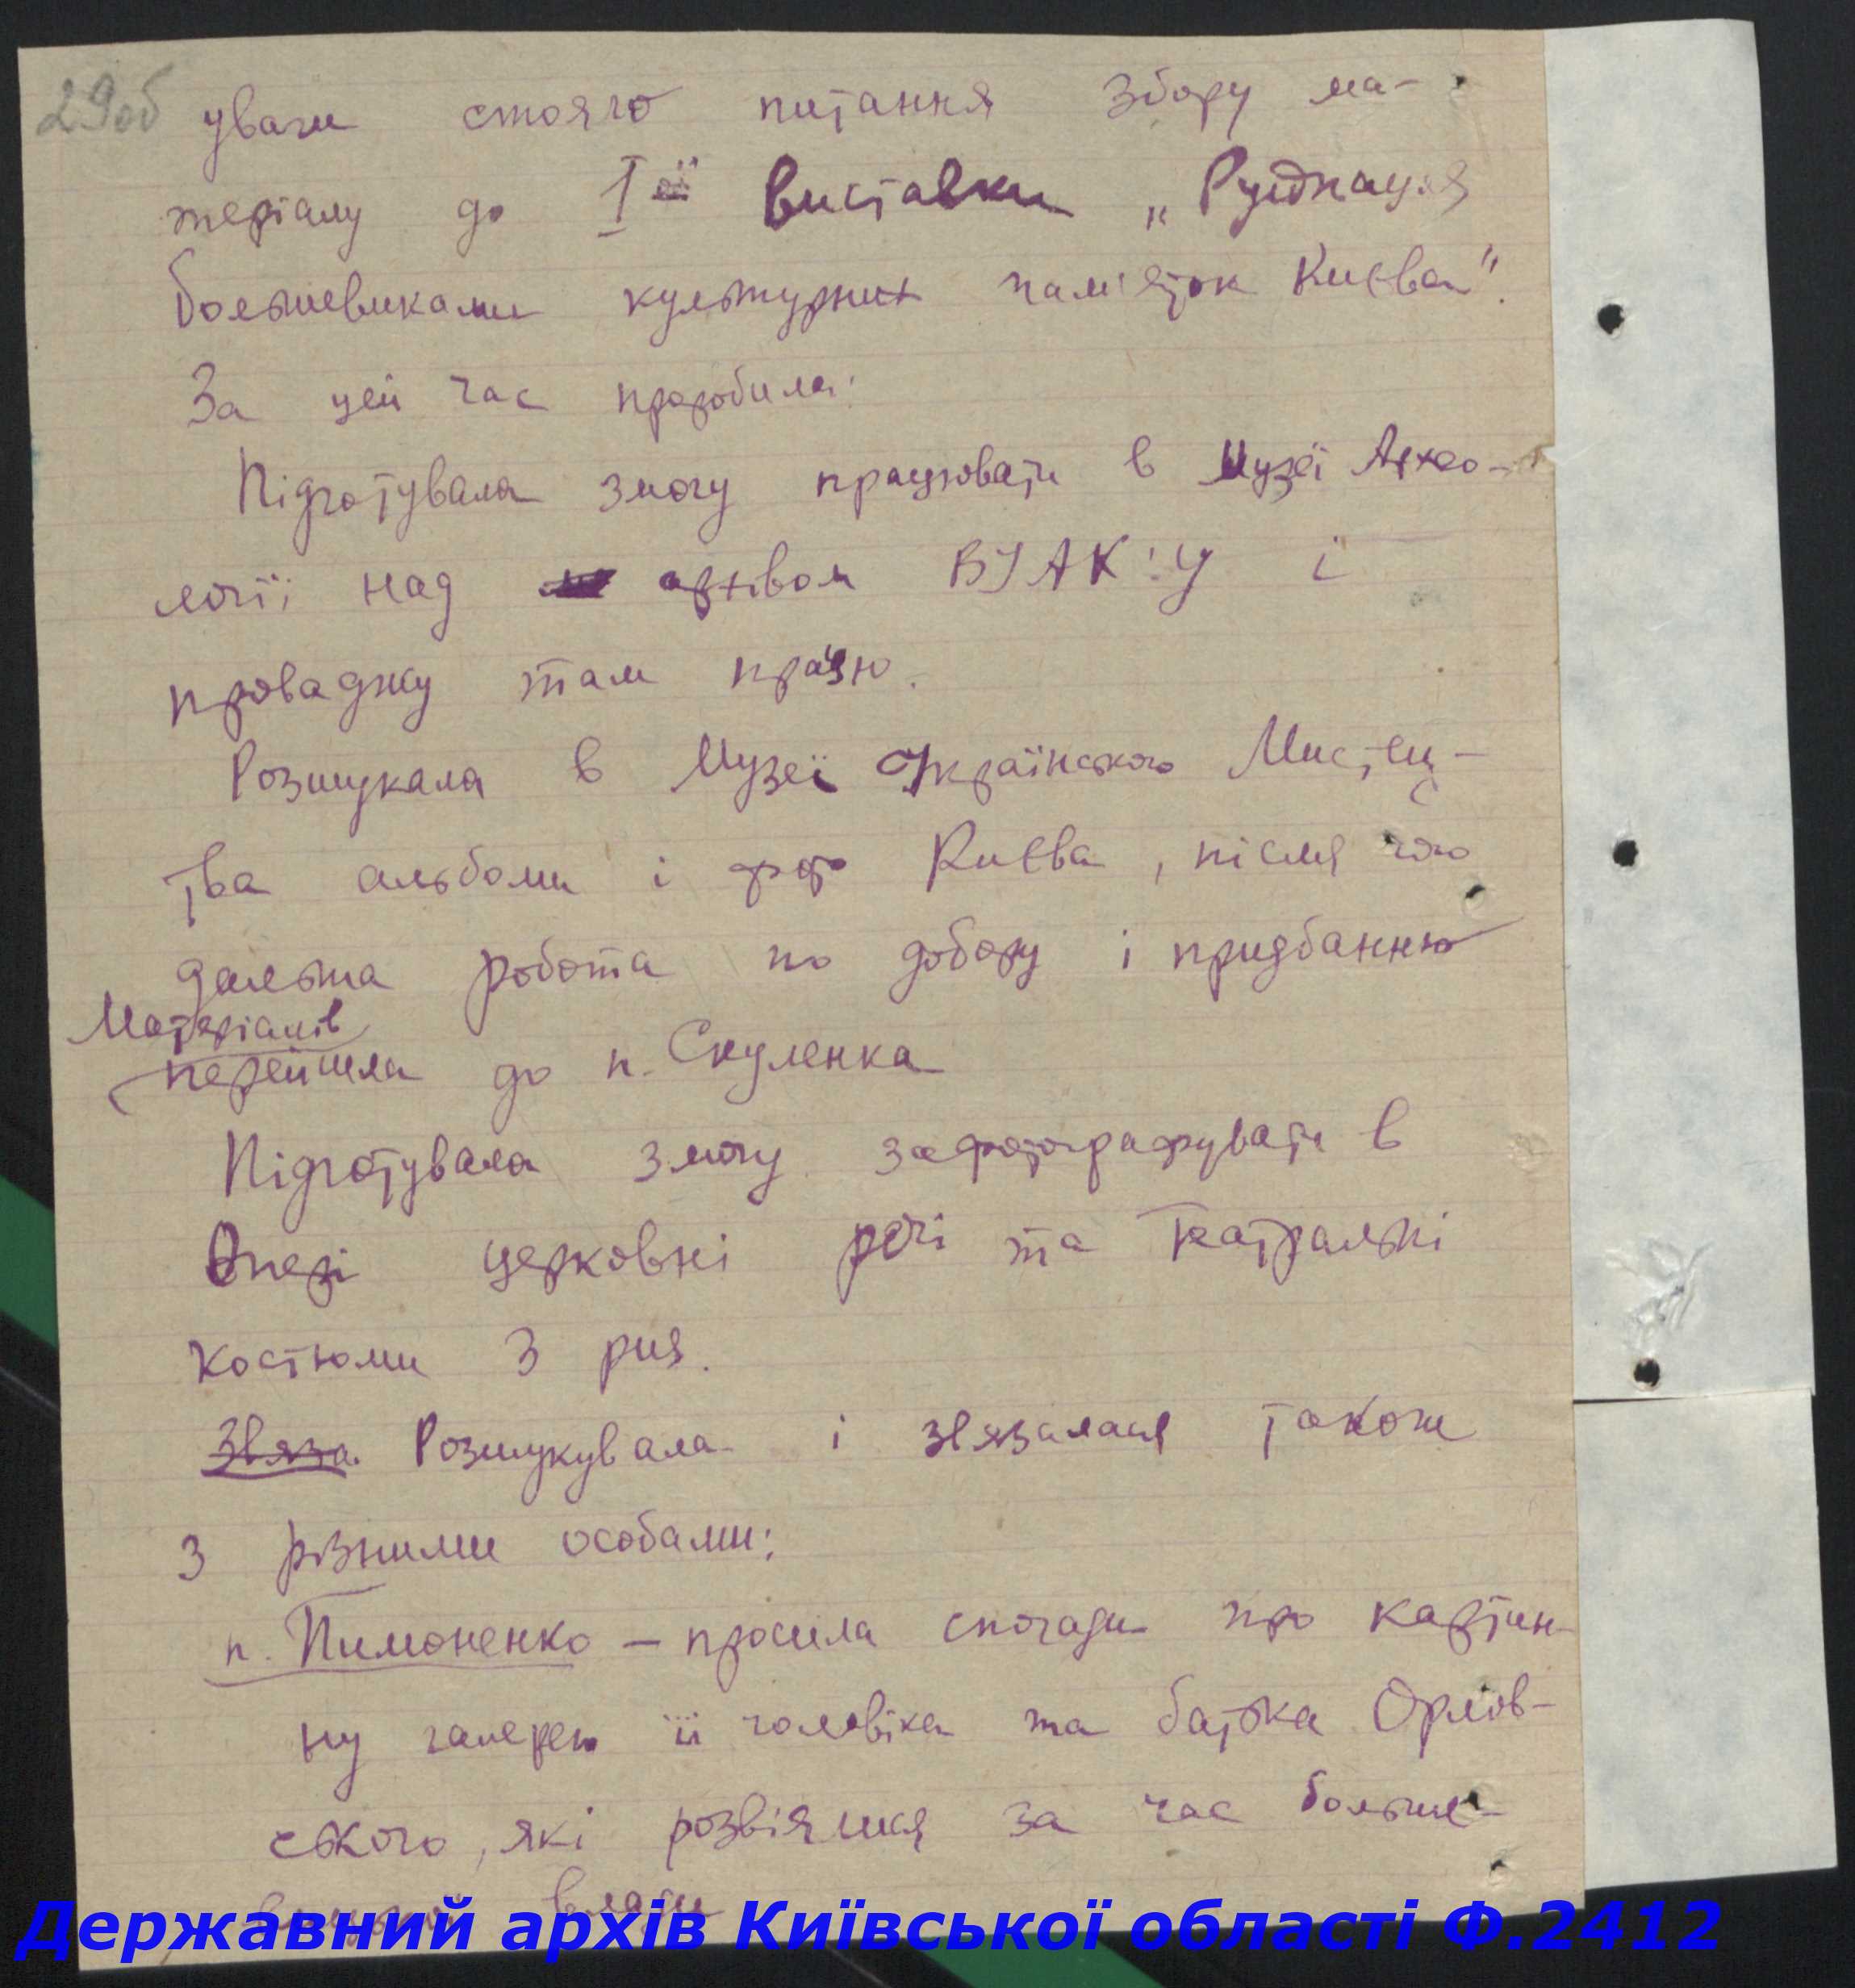 29об
уваги стояло питання збору ма-
теріалу до I-ої виставки „Руйнація
большевиками культурних пам'яток Києва".
За цей час проробила:
Підготувала змогу працювати в Музеї Архео-
логії над архівом ВУАК'у і
проваджу там працю.
Розшукала в Музеї Українського Мистец-
тва альбоми і фото Києва, після чого
дальша робота по добору і придбанню
матеріалів
перейшла до п. Скуленка
Підготувала змогу зафотографувати в
Опері церковні речі та театральні
костюми з риз.
Звяза Розшукувала і звязалася також
з різними особами:
п. Пимоненко – просила спогади про картин-
ну галерею її чоловіка та батька Орлов-
ського, які розвіялися за час больше-
вицької влади
Державний архів Київської області Ф.2412